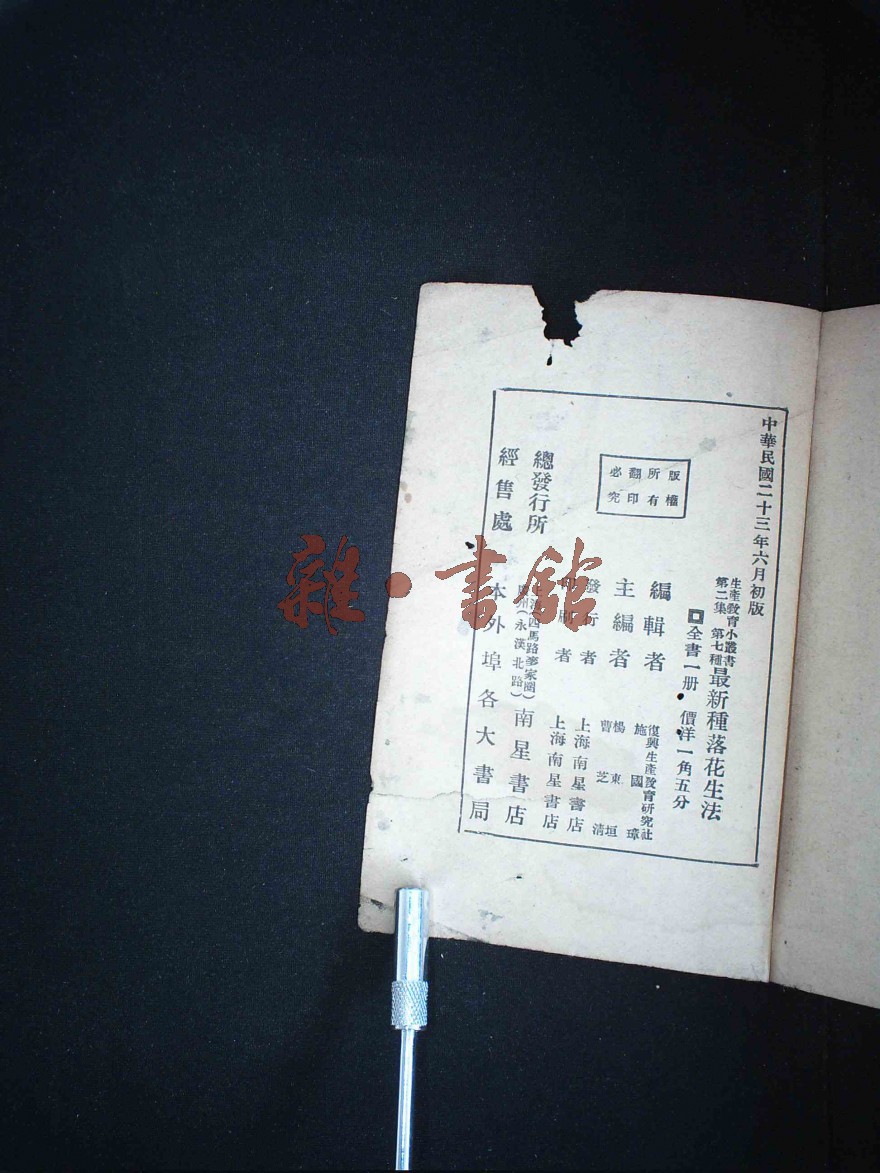 中華民國二十三年六月初版
生產敎育小叢書
第二集 第七種
最新種落花生法
全書一册 價洋一角五分
版權
所有
翻印
必究
編輯者
復興生產敎育研究社
施國璋
主編者
楊東垣
曹芝淸
發行者 上海南星書店
印刷者 上海南星書店
總發行所
上海(四馬路麥家圈)
廣州(永漢北路)
南星書店
經售處 本外埠各大書局
雜·書館